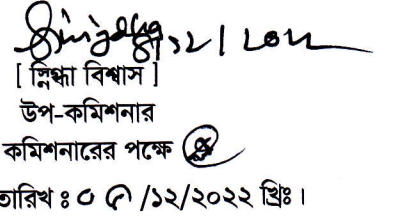 [ স্নিগ্ধা বিশ্বাস ]
উপ-কমিশনার
কমিশনারের পক্ষে
তারিখ ঃ ০ /১২/২০২২ খ্রিঃ।